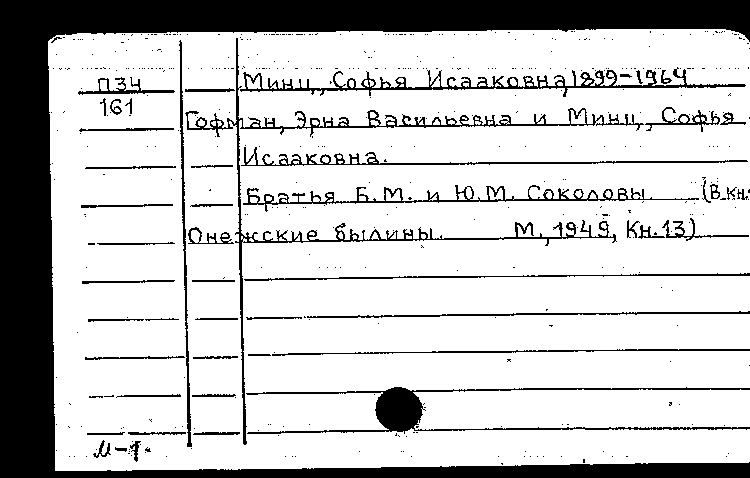 П34 Минц, Софья Исааковна, 1899-1964
161 Гофман, Эрна Васильевна и Минц, Софья
Исааковна.
Братья Б.М. и Ю.М. Соколовы. (В кн.
Онежские былины. М., 1949, Кн. 13)